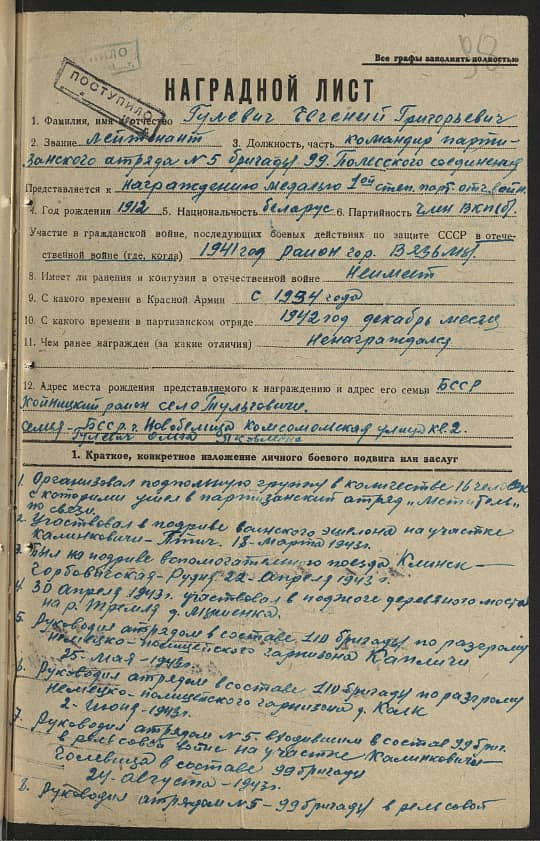 98
Все графы заполнять полностью
ПОСТУПИЛО
НАГРАДНОЙ ЛИСТ
1. Фамилия, имя и отчество Гулевич Евгений Григорьевич
2. Звание лейтенант 3. Должность, часть командир парти-
занского отряда №5 бригады 99 Полесского соединения
Представляется к награждению медалью 1ой степ. парт. отч. войн.
4. Год рождения 1912 5. Национальность беларус 6. Партийность член ВКП(б)
7. Участие в гражданской войне, последующих боевых действиях по защите СССР в отече-
ственной войне (где, когда) 1941 год район гор. Вязьмы
8. Имеет ли ранения и контузия в отечественной войне Неимеет
9. С какого времени в Красной Армии с 1934 года
10. С какого времени в партизанском отряде 1942 год декабрь месяц
11. Чем ранее награжден (за какие отличия) Ненаграждался
12. Адрес места рождения представляемого к награждению и адрес его семьи БССР
Хойницкий район село Тульговичи.
семия - БССР г. Новобелица Комсомомская улица кв. 2.
Гулевич Ольга Яковлевна
1. Краткое, конкретное изложение личного боевого подвига или заслуг
1. Организовал подпольную группу в количестве 16 человек
с которими ушел в партизанский отряд „Мститель"
по связи.
2. Участвовал в подриве воинского эшелона на участке
Калинковичи - Птич. 18-марта 1943г.
3. Был на подриве вспомогательного поезда Клинск -
Горбовичская-Рудня 22-Апреля 1943г.
4. 30 Апреля 1943г. участвовал в поджоге деревяного моста
на р. Тремля д.
5. Руководил отрядом в составе 110 бригады по разгрому
немецко-полицейского гарнизона Капличи
25-Мая-1943г.
6. Руководил отрядом в составе 110 бригады по разгрому
немецко-полицейского гарнизона д. Калк
2-Июня-1943г.
7. Руководил отрядом №5 входившим в состав 99 бриг.
в рельсовой войне на участке Калинковичи -
Голевица в составе 99 бригады
24-Августа-1943г.
8. Руководил отрядом №5-99 бригады в рельсовой